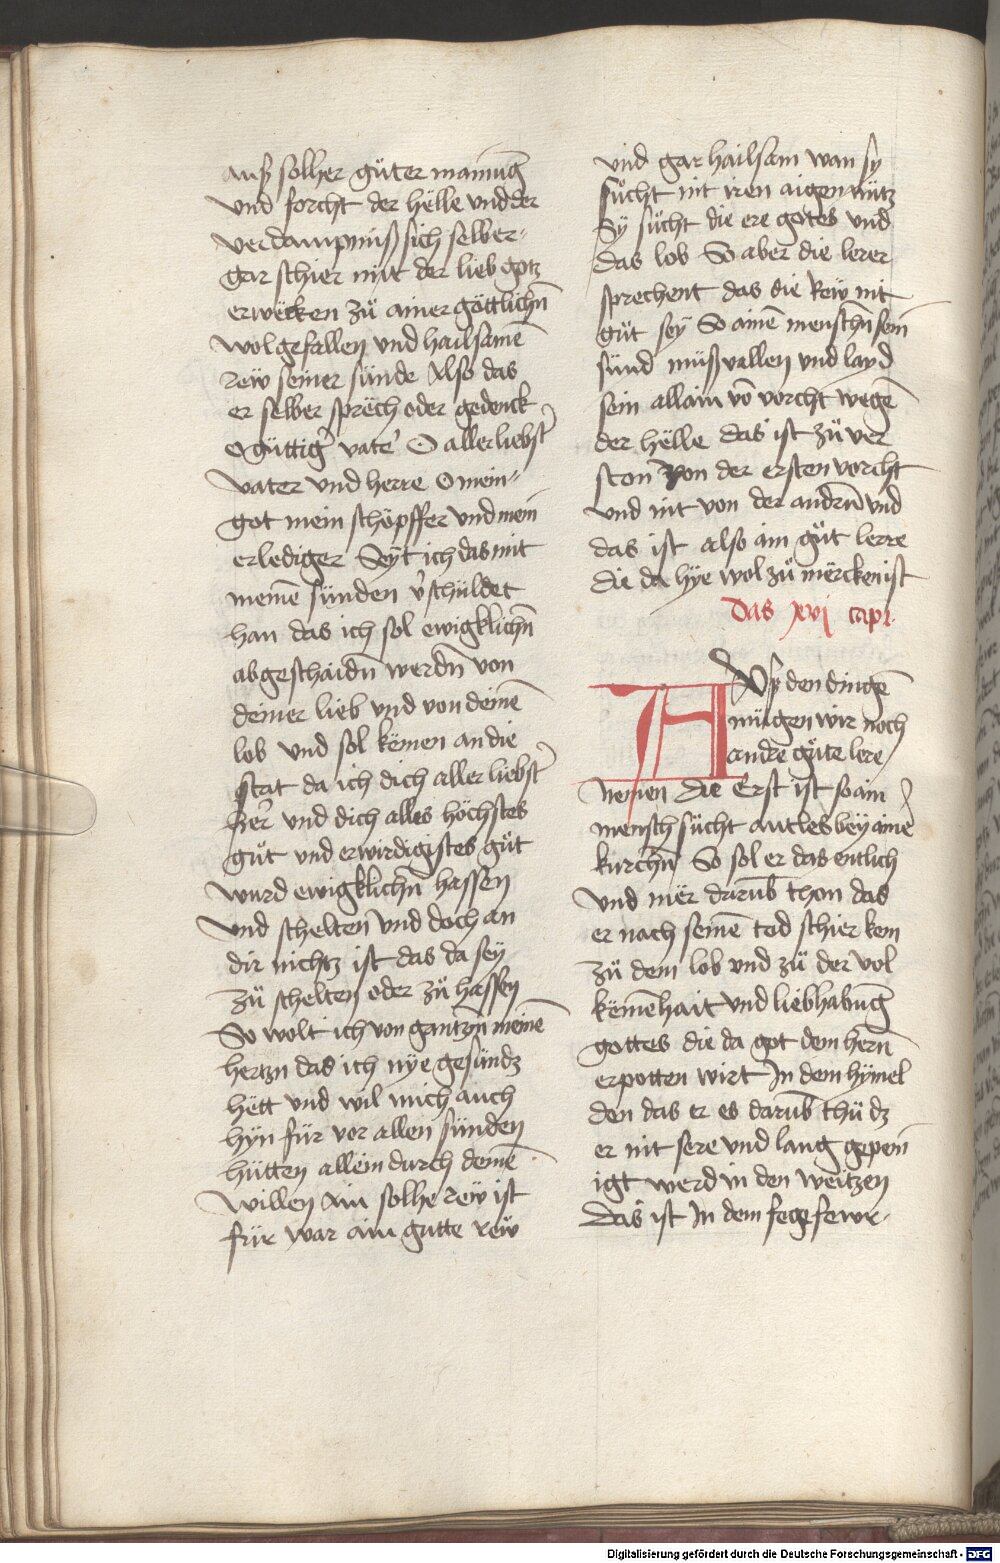 auß solher guͤter mainūg
vnd forcht der hëlle vnd der
verdampnüß sich selber
gar schier mit der lieb gotz
erwëcken zuͦ ainer göttlichñ
wolgefallen vnd hailsamē
rew seiner sünde Also das
er selber sprëch oder gedenck
O güttigr̄ vater O allerliebster
vater vnd herre O mein
got mein schöpffer vnd mein
erlediger Seyt ich das mit
meinē sünden v̄schüldet
han das ich sol ewigklichñ
abgeschaidñ werdñ von
deiner lieb vnd von deinē
lob vnd sol këmen an die
stat da ich dich aller liebster
her̄ vnd dich alles höchstes
guͤt vnd erwirdigistes guͤt
wurd ewigklichñ hassen
vnd schelten vnd doch an
dir nichtz ist das da sey
zuͦ schelten oder zuͦ hassen
So wolt ich von gantzñ meinē
hertzn das ich nye gesündz
hëtt vnd wil mich auch
hyn für vor allen sünden
hütten allein durch deinē
willen Ain solhe rew ist
für war ain gutte rew
vnd gar hailsam wan sy
suͤcht nit iren aigen nütz
Sy suͤcht die ere gotes vnd
das lob So aber die lerer
sprechent das die Rew nit
guͤt sey So ainē menschñ sein
sünd müßvallen vnd layd
sein allain vō vorcht wegē
der hëlle das ist zuͦ ver
ston von der ersten vorcht
vnd nit von der andrñ vnd
das ist also ain guͤt lerre
die da hye wol zuͦ mërcken ist
Das xvj capi
Auß den dingē
mügen wir noch
andre guͤte lere
nemen die Erst ist so ain
mensch suͤcht antles bey ainē
kirchñ So sol er das entlich
vnd mër darūb thon das
er nach seinē tod schier kem
zuͦ dem lob vnd zuͦ der vol
këmēhait vnd liebhabūg
gottes die da got dem hern̄
erpotten wirt In dem hymel
den das er es darūb thü dz
er nit sere vnd lang gepein
igt werd in den weitzen
Das ist In dem fegfewr
Digitalisierung gefördert durch die Deutsche Forschungsgemeinschaft - DFG